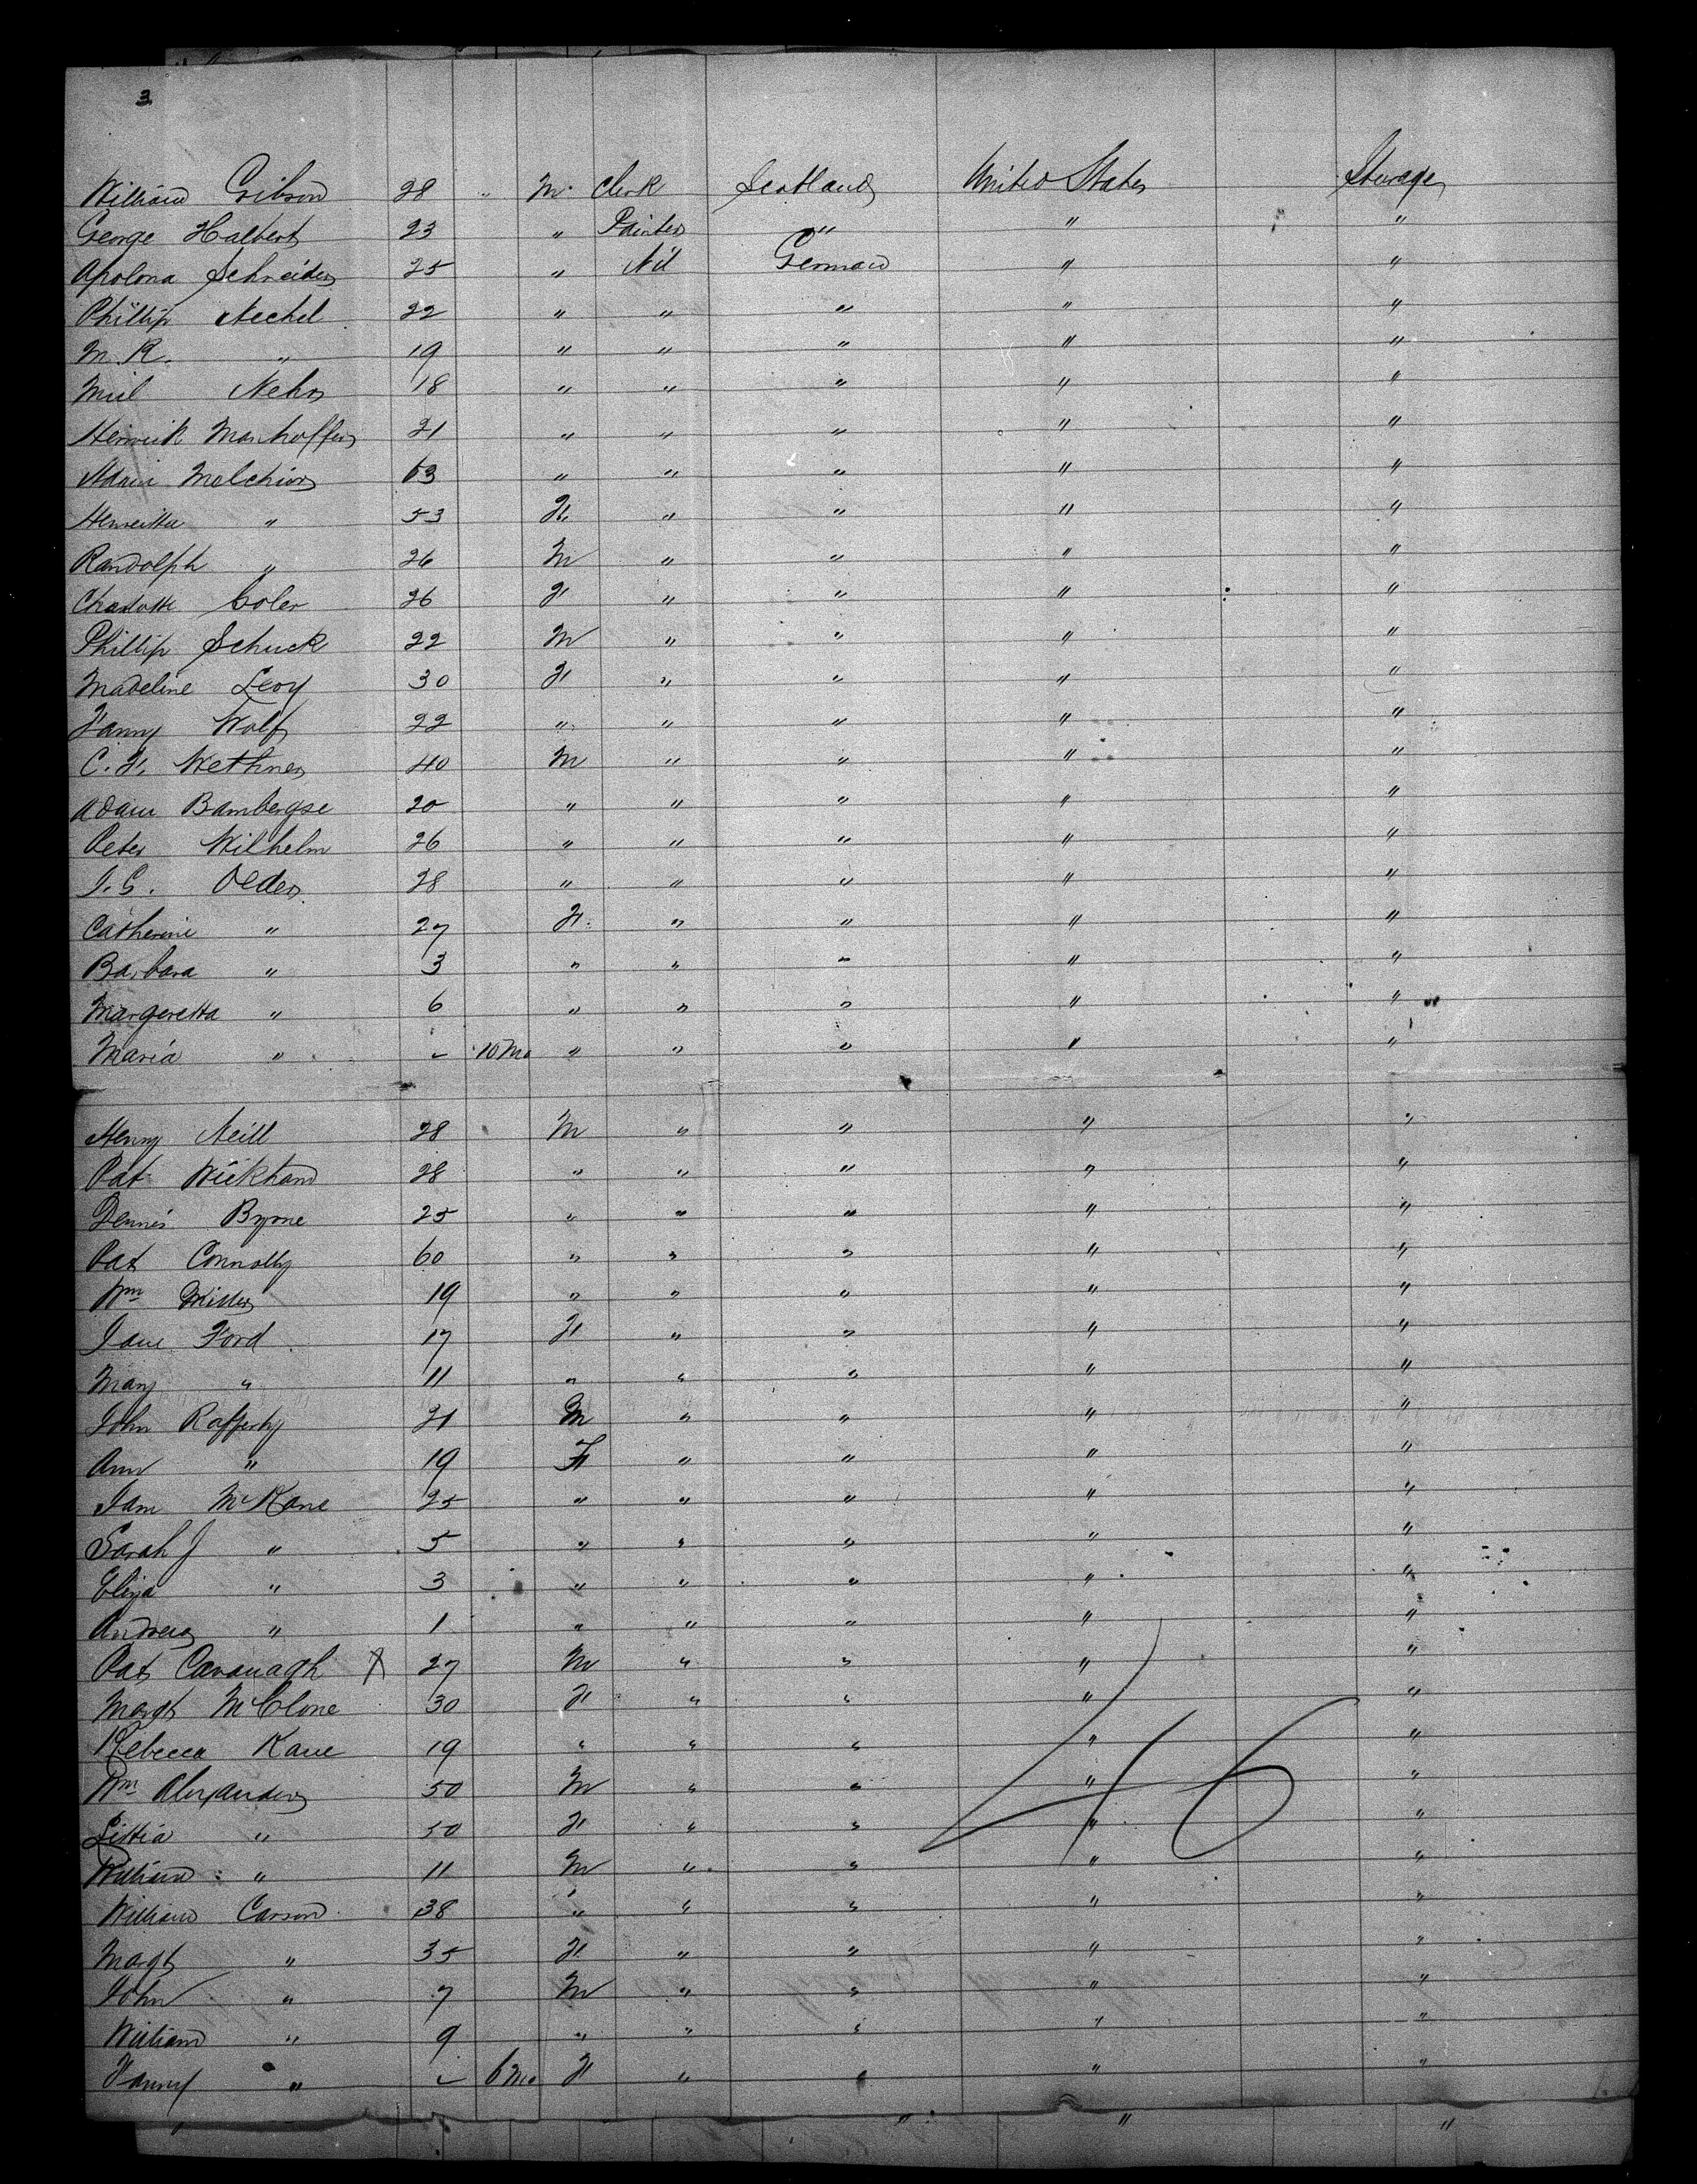 3
William Gibson 28 " M. Clerk Scotland United States Steerage
George Halbert 23 " Painter " " "
Apolona Schneider 25 " Nil German " "
Phillip Nechel 22 " " " " "
M. R. " 19 " " " " "
18 " " " " "
Manhoffer 21 " " " " "
Melchior 63 " " " " "
Henrietta " 53 F. " " " "
Randolph " 26 M " " " "
Charlotte Coler 26 F " " " "
Phillip Schuck 22 M " " " "
Madeline Levy 30 F " " " "
Fanny Wolf 22 " " " " "
C. F. Wethner 40 M " " " "
Adam Bambergse 20 " " " " "
Peter Wilhelm 26 " " " " "
Oeder 28 " " " " "
Catherine " 27 F. " " " "
Barbara " 3 " " " " "
Margeretta " 6 " " " " "
Maria " 10 Mo " " " " "
Henry Neill 28 M " " " "
Pat Wickham 28 " " " " "
Dennis Byrne 25 " " " " "
Pat Connolly 60 " " " " "
Wm 19 " " " " "
Jane Ford 17 F " " " "
Mary " 11 " " " " "
John Rafferty 21 M " " " "
Ann " 19 F " " " "
Jane McKane 25 " " " " "
Sarah J " 5 " " " " "
Eliza " 3 " " " " "
Andrew " 1 " " " " "
Pat Cavanagh X 27 M " " " "
Margt McClone 30 F " " " "
Rebecca Kane 19 " " " " "
Wm Alexander 50 M " " " "
Littia " 50 F " " " "
William " 11 M " " " "
William Carson 38 " " " " "
Margt " 35 F " " " "
John " 7 M " " " "
William " 9 " " " " "
Fanny " 6 Mo F " " " "
46